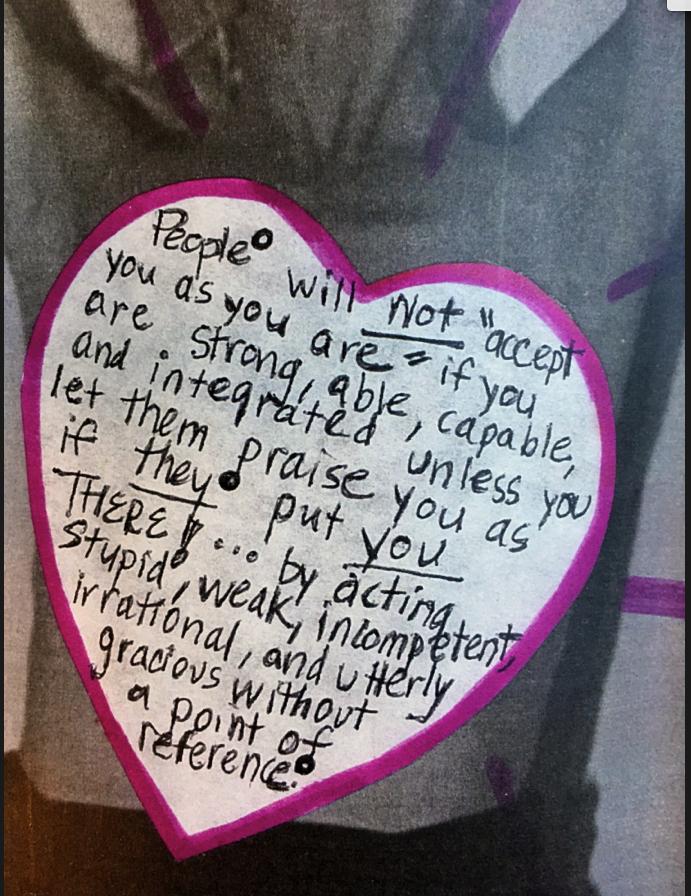 People will Not "accept
you as you are" if you
are strong, able, capable,
and integrated, unless you
let them praise you as
if they put you
THERE!... by acting
stupid, weak, incompetent,
irrational, and utterly
gracious without
a point of
reference.